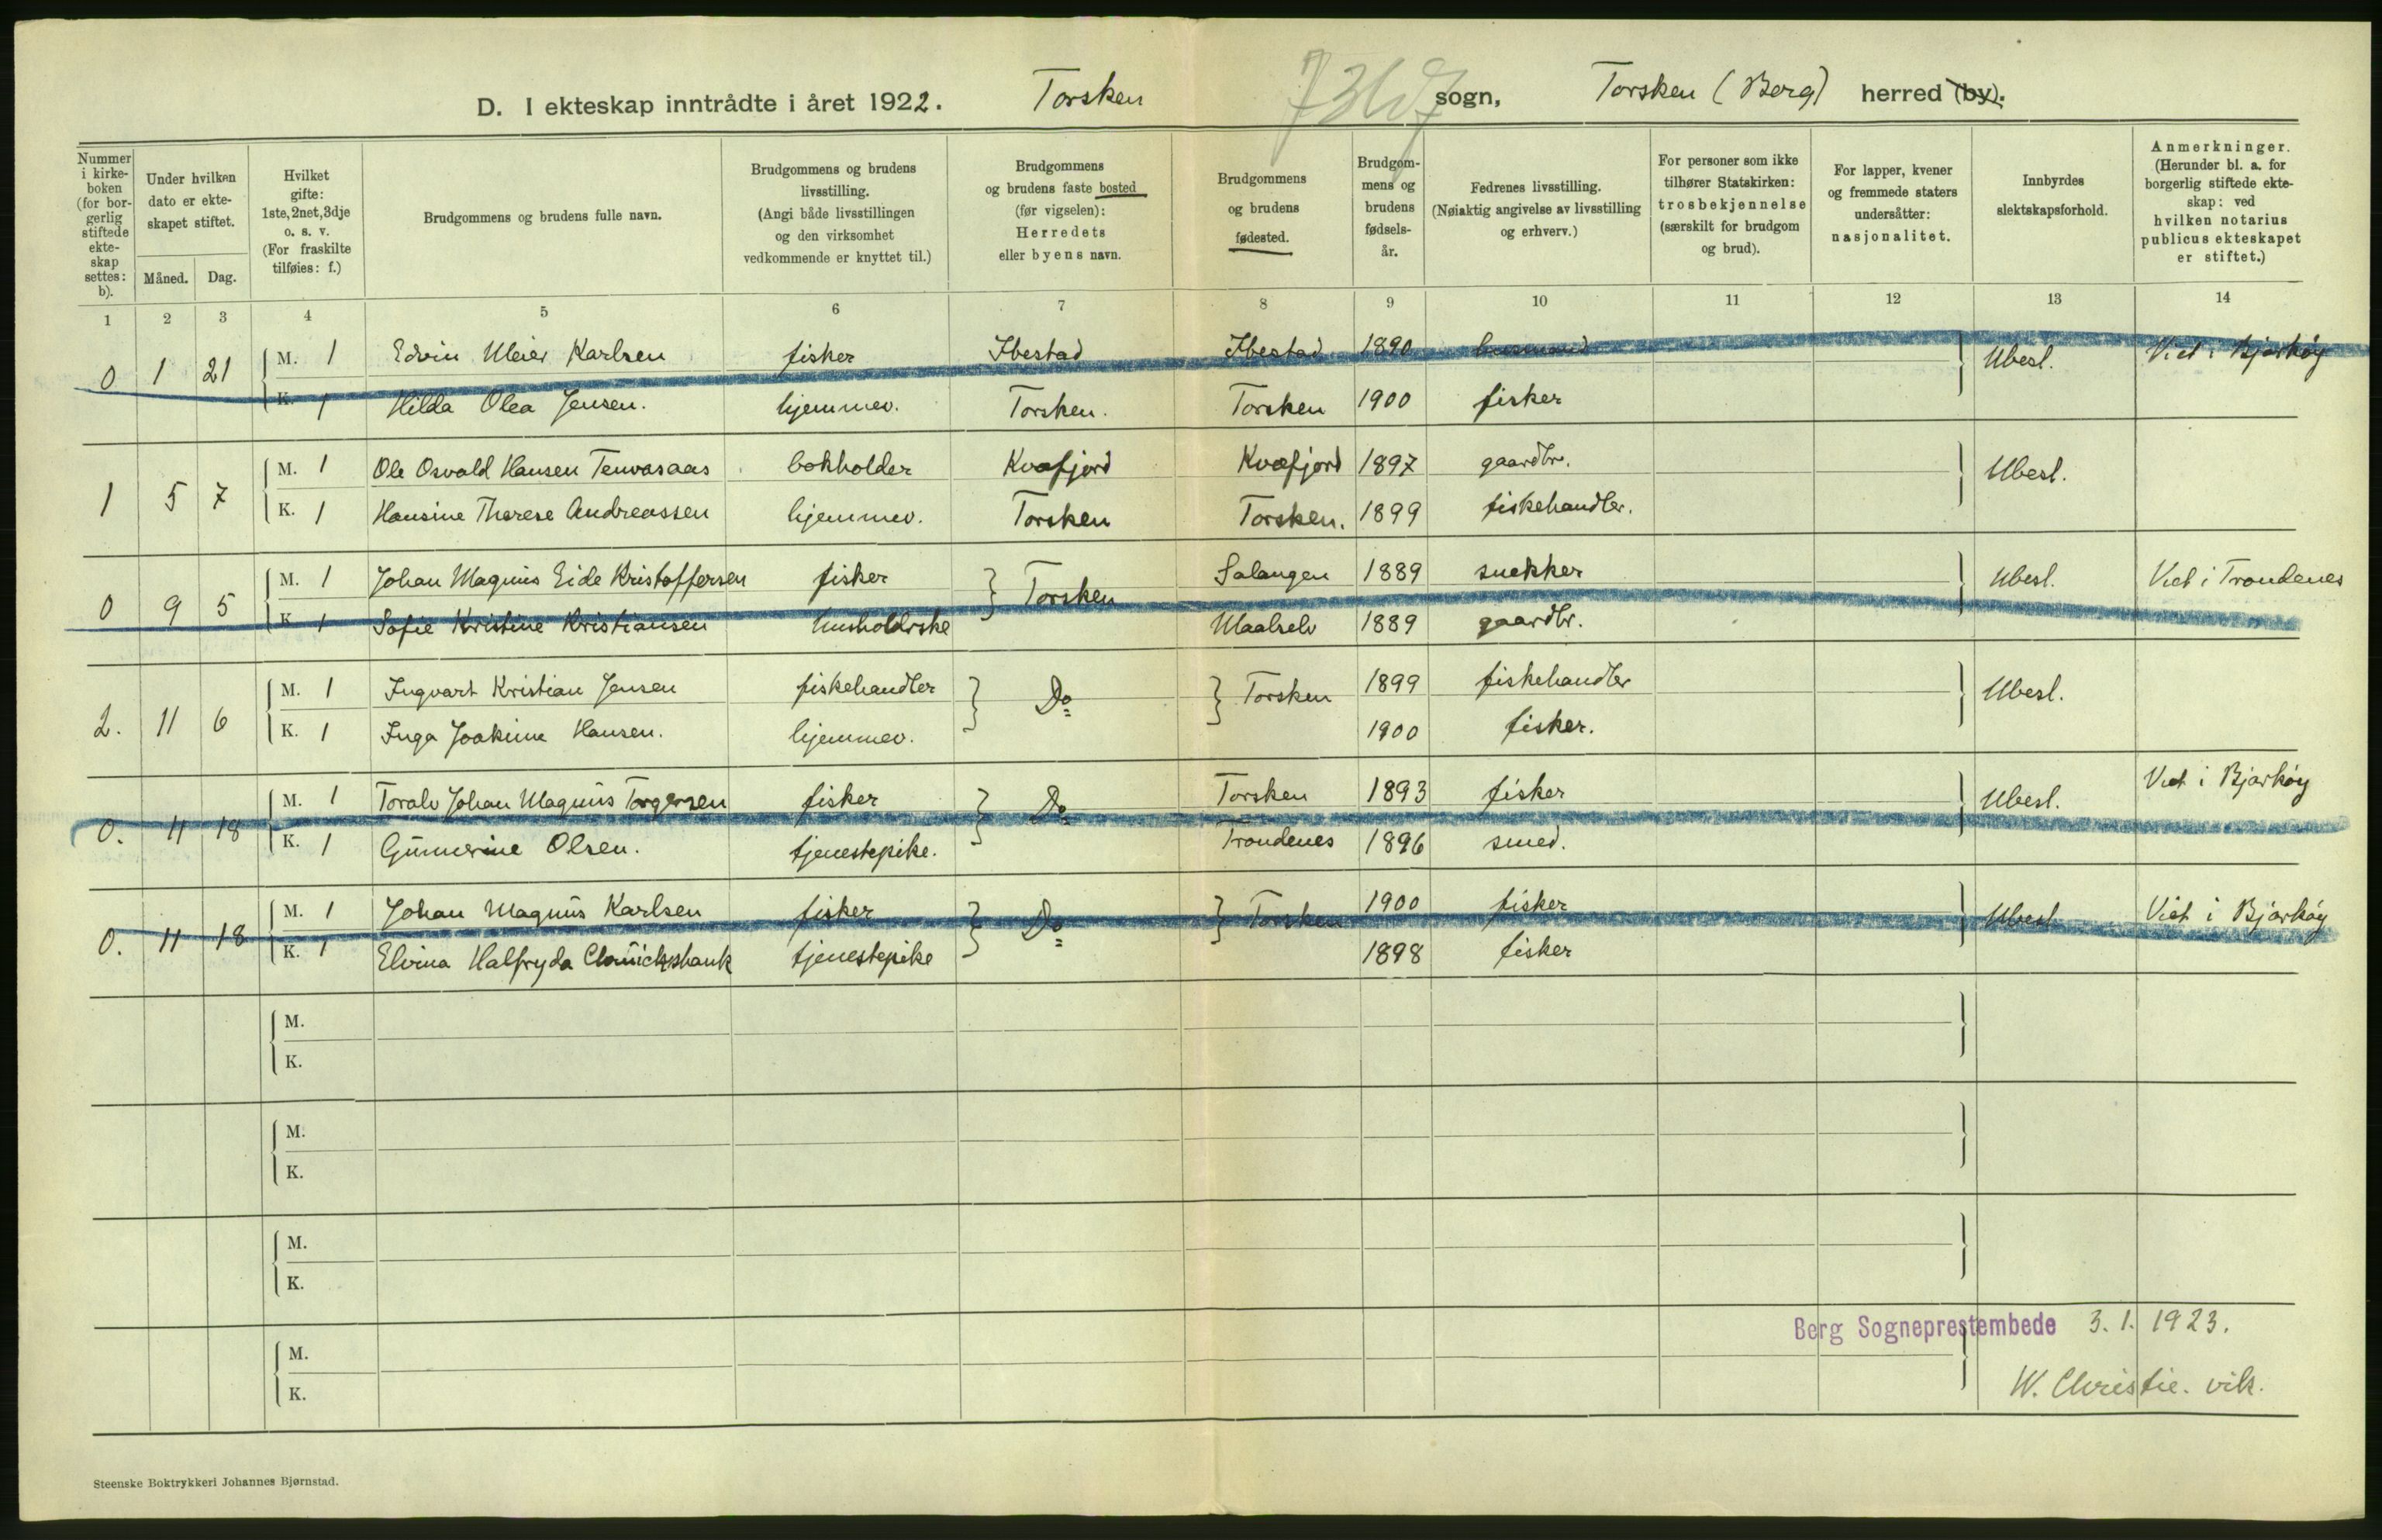 D. I ekteskap inntrådte i året 1922. Torsken sogn, Torsken (Berg) herred (by).
Nummer i kirkeboken (for borgerlig stiftede ekteskap settes: b).
Under hvilken dato er ekteskapet stiftet.
Måned. Dag.
Hvilket gifte: 1ste, 2net, 3dje o. s. v. (For fraskilte tilføies: f.)
Brudgommens og brudens fulle navn.
Brudgommens og brudens livsstilling. (Angi både livsstillingen og den virksomhet vedkommende er knyttet til.)
Brudgommens og brudens faste bosted (før vigselen): Herredets eller byens navn.
Brudgommens og brudens fødested.
Brudgommens og brudens fødselsår.
Fedrenes livsstilling. (Nøiaktig angivelse av livsstilling og erhverv.)
For personer som ikke tilhører Statskirken: trosbekjennelse (særskilt for brudgom og brud).
For lapper, kvener og fremmede staters undersåtter: nasjonalitet.
Innbyrdes slektskapsforhold.
Anmerkninger. (Herunder bl. a. for borgerlig stiftede ekteskap: ved hvilken notarius publicus ekteskapet er stiftet.)
1 2 3 4 5 6 7 8 9 10 11 12 13 14
0 1 21 M. 1 Edvin Meier Karlsen fisker Ibestad Ibestad 1890 husmand Ubesl. Viet i Bjarköy
K. 1 Hilda Olea Jensen. hjemmev. Torsken. Torsken 1900 fisker
1 5 7 M. 1 Ole Osvald Hansen Tenvasaas bokholder Kvæfjord Kvæfjord 1897 gaardbr. Ubesl.
K. 1 Hansine Therese Andreassen hjemmev. Torsken Torsken. 1899 fiskehandler.
0 9 5 M. 1 Johan Magnus Eide Kristoffersen fisker Torsken Salangen 1889 snekker Ubesl. Viet i Trondenes
K. 1 Sofie Kristine Kristiansen husholdrske Maalselv 1889 gaardbr.
2. 11 6 M. 1 Ingvart Kristian Jensen fiskehandler Do Torsken 1899 fiskehandler Ubesl.
K. 1 Inga Joakime Hansen. hjemmev. 1900 fisker.
0. 11 18 M. 1 Toralv Johan Magnus Torgersen fisker Do Torsken 1893 fisker Ubesl. Viet i Bjarköy
K. 1 Gunnerine Olsen. tjenestepike. Trondenes 1896 smed.
0. 11 18 M. 1 Johan Magnus Karlsen fisker Do Torsken 1900 fisker Ubesl Viet i Bjarköy
K. 1 Elvina Halfryda tjenestepike 1898 fisker
M.
K.
M.
K.
M.
K.
M.
K.
Berg Sogneprestembede 3. 1. 1923.
W. Christie. vik.
Steenske Boktrykkeri Johannes Bjørnstad.